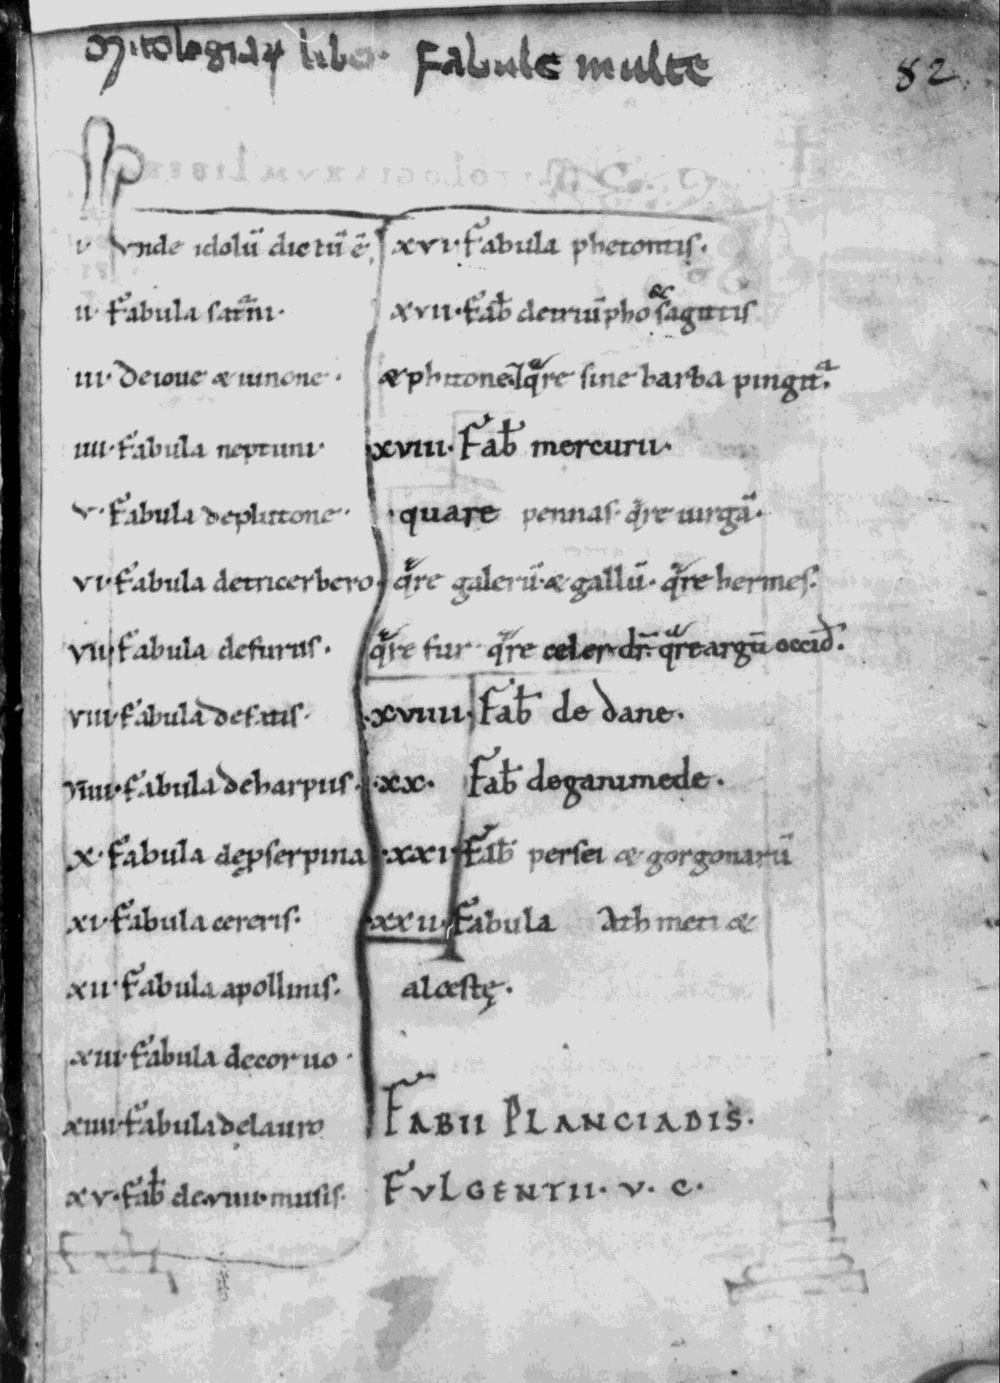 Mitologiaꝝ lib. Fabule multe
82
i· Vnde idolū dictū ē·
ii· Fabula satrni·
iii· De ioue & iunone·
iiii· Fabula neptuni·
v· Fabula deplutone·
vi· Fabula detricerbero
vii· Fabula defuriis·
viii· Fabula defatis·
viiii· Fabula deharpiis·
x· Fabula deꝓserpina
xi· Fabula cereris·
xii· Fabula apollinis·
xiii· Fabula decoruo·
xiiii· Fabula delauro
xv· Fab̄ de·viiii·musis·
xvi· Fabula phetontis·
xvii· Fab̄ detriuīpho & sagittis
& phitone & qͣre sine barba pingitͬ·
xviii· Fab̄ mercurii·
quare pennas· qͣre uirgā·
qͣre galerū· & gallū· qͣre hermes·
qͣre fur qͣre celer dr̄· qͣre argū occid̄·
xviiii· Fab̄ de dane·
xx· Fab̄ deganimede·
xxi· Fab̄ persei & gorgonarū
xxii· Fabula Athmeti &
alcestę·
FABII PLANCIADIS·
FVLGENTII· V· C·